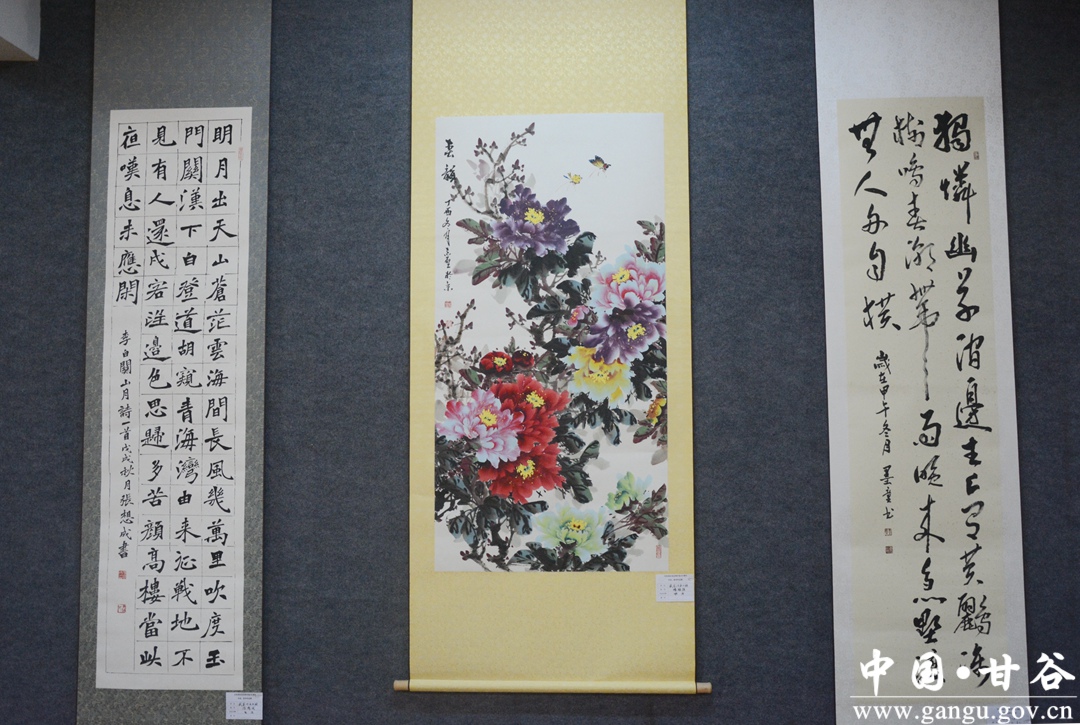 明月出天山蒼茫雲海間長風幾萬里吹度玉
門關漢下白澄道胡窺青海灣由来征戰地不
見有人還戍客望邊色思歸多苦顏高樓當此
夜嘆息未應閑
李白關山月詩一首戊戌秋月張想成書
春韻
丁酉冬月
獨憐幽草澗邊生上有黃鸝深
樹鳴春潮帶雨晚来急野渡
無人舟自橫
歲在甲午冬月
中国·甘谷
www.gangu.gov.cn